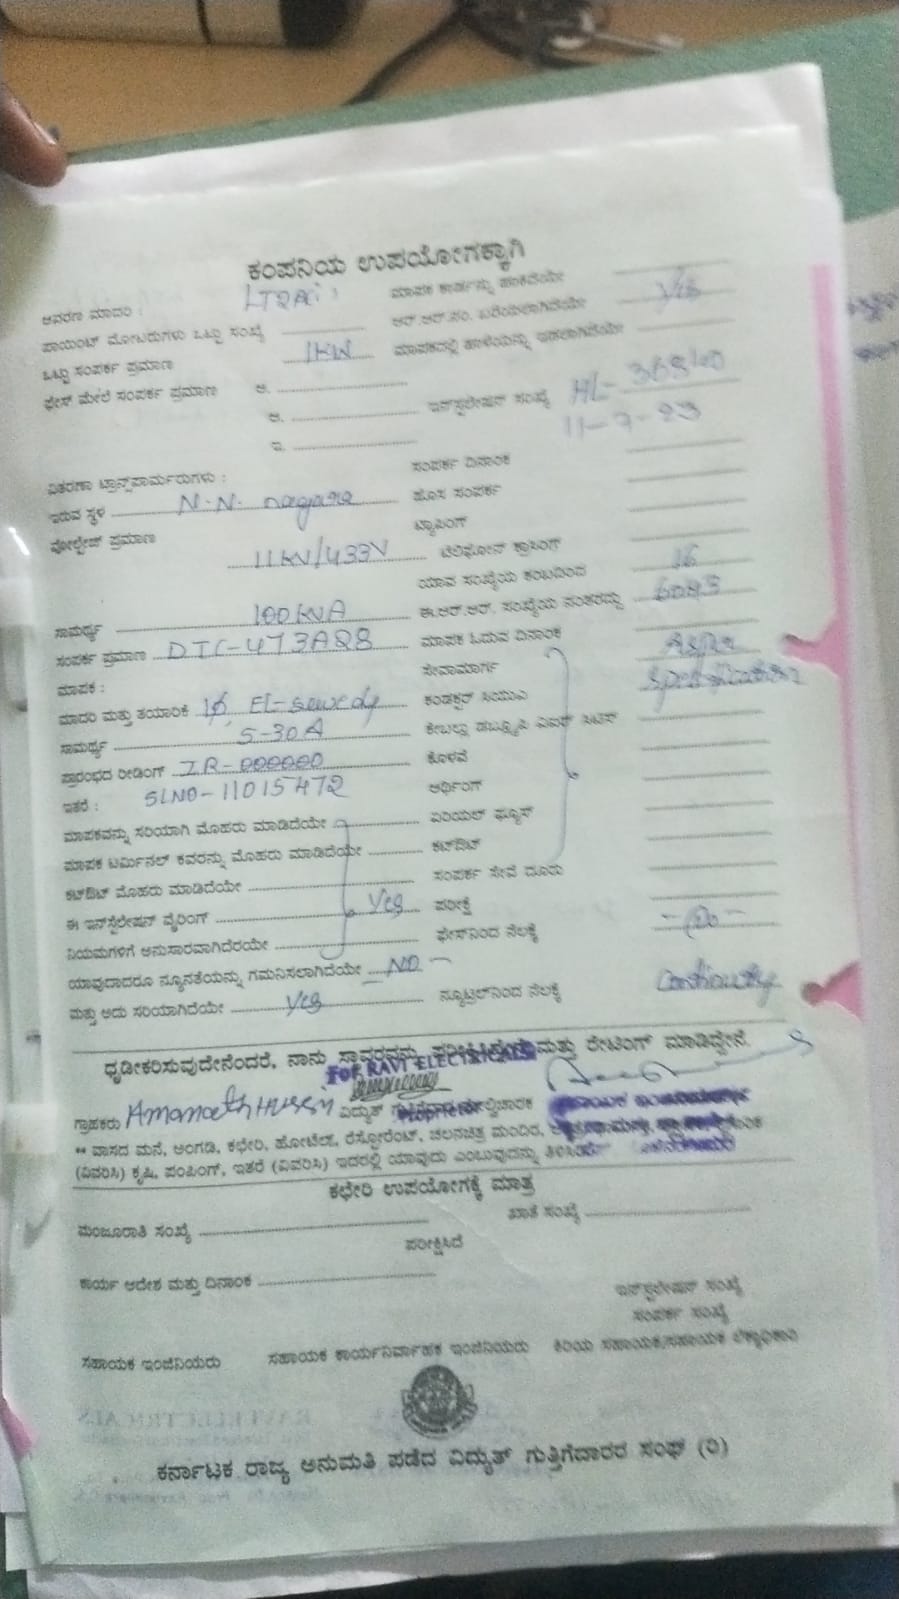 ಕಂಪನಿಯ ಉಪಯೋಗಕ್ಕಾಗಿ
ಆವರಣ ಮಾದರಿ : ಮಾಪಕ ಕಾರ್ಡನ್ನು ಹಾಕಿದೆಯೇ
ಪಾಯಿಂಟ್ ಮೋಟರುಗಳು ಒಟ್ಟು ಸಂಖ್ಯೆ ಆರ್.ಆರ್.ನಂ. ಬರೆಯಲಾಗಿದೆಯೇ Yes
ಒಟ್ಟು ಸಂಪರ್ಕ ಪ್ರಮಾಣ 1KW ಮಾಪಕದಲ್ಲಿ ಹಾಳೆಯನ್ನು ಇಡಲಾಗಿದೆಯೇ
ಫೇಸ್ ಮೇಲೆ ಸಂಪರ್ಕ ಪ್ರಮಾಣ ಅ.
ಆ. ಇನ್‌ಸ್ಟಲೇಷನ್ ಸಂಖ್ಯೆ
ಇ. 11-7-23
ವಿತರಣಾ ಟ್ರಾನ್ಸ್‌ಫಾರ್ಮರುಗಳು : ಸಂಪರ್ಕ ದಿನಾಂಕ
ಇರುವ ಸ್ಥಳ N.N. nagara ಹೊಸ ಸಂಪರ್ಕ
ವೋಲ್ಟೇಜ್ ಪ್ರಮಾಣ ಟ್ಯಾಪಿಂಗ್
11KV/433V ಟೆಲಿಫೋನ್ ಕ್ರಾಸಿಂಗ್
ಯಾವ ಸಂಖ್ಯೆಯ ಕಂಬದಿಂದ 16
ಸಾಮರ್ಥ್ಯ 100KVA ಈ.ಆರ್.ಆರ್. ಸಂಖ್ಯೆಯ ನಂತರದ್ದು
ಸಂಪರ್ಕ ಪ್ರಮಾಣ DTC-473AQ8 ಮಾಪಕ ಓದುವ ದಿನಾಂಕ
ಮಾಪಕ : ಸೇವಾಮಾರ್ಗ
ಮಾದರಿ ಮತ್ತು ತಯಾರಿಕೆ 1Φ El-sewedy ಕಂಡಕ್ಟರ್ ಸಿಯುಎ
ಸಾಮರ್ಥ್ಯ 5-30A
ಪ್ರಾರಂಭದ ರೀಡಿಂಗ್ IR-000000 ಕೊಳವೆ
ಇತರೆ : SLNO-11015472 ಅರ್ಥಿಂಗ್
ಮಾಪಕವನ್ನು ಸರಿಯಾಗಿ ಮೊಹರು ಮಾಡಿದೆಯೇ ಏರಿಯಲ್ ಫ್ಯೂಸ್
ಮಾಪಕ ಟರ್ಮಿನಲ್ ಕವರನ್ನು ಮೊಹರು ಮಾಡಿದೆಯೇ ಕಟ್‌ಔಟ್
ಕಟ್‌ಔಟ್ ಮೊಹರು ಮಾಡಿದೆಯೇ ಸಂಪರ್ಕ ಸೇವೆ ದೂರು
ಈ ಇನ್‌ಸ್ಟಲೇಷನ್ ವೈರಿಂಗ್ Yes ಪರೀಕ್ಷೆ
ನಿಯಮಗಳಿಗೆ ಅನುಸಾರವಾಗಿದೆರಯೇ ಫೇಸ್‌ನಿಂದ ನೆಲಕ್ಕೆ
ಯಾವುದಾದರೂ ನ್ಯೂನತೆಯನ್ನು ಗಮನಿಸಲಾಗಿದೆಯೇ NO
ಮತ್ತು ಅದು ಸರಿಯಾಗಿದೆಯೇ Yes ನ್ಯೂಟ್ರಲ್‌ನಿಂದ ನೆಲಕ್ಕೆ
ಧೃಡೀಕರಿಸುವುದೇನೆಂದರೆ, ನಾನು ಮತ್ತು ರೇಟಿಂಗ್ ಮಾಡಿದ್ದೇನೆ.
For RAVI ELECTRICALS
ಗ್ರಾಹಕರು ವಿದ್ಯುತ್
** ವಾಸದ ಮನೆ, ಅಂಗಡಿ, ಕಛೇರಿ, ಹೋಟೆಲ್, ರೆಸ್ಟೋರೆಂಟ್, ಚಲನಚಿತ್ರ ಮಂದಿರ,
(ವಿವರಿಸಿ) ಕೃಷಿ, ಪಂಪಿಂಗ್, ಇತರೆ (ವಿವರಿಸಿ) ಇದರಲ್ಲಿ ಯಾವುದು ಎಂಬುವುದನ್ನು ತಿಳಿಸಿ
ಕಛೇರಿ ಉಪಯೋಗಕ್ಕೆ ಮಾತ್ರ
ಮಂಜೂರಾತಿ ಸಂಖ್ಯೆ ಖಾತೆ ಸಂಖ್ಯೆ
ಪರೀಕ್ಷಿಸಿದೆ
ಕಾರ್ಯ ಆದೇಶ ಮತ್ತು ದಿನಾಂಕ
ಇನ್‌ಸ್ಟಲೇಷನ್ ಸಂಖ್ಯೆ
ಸಂಪರ್ಕ ಸಂಖ್ಯೆ
ಸಹಾಯಕ ಇಂಜಿನಿಯರು ಸಹಾಯಕ ಕಾರ್ಯನಿರ್ವಾಹಕ ಇಂಜಿನಿಯರು ಕಿರಿಯ ಸಹಾಯಕ/ಸಹಾಯಕ ಲೆಕ್ಕಾಧಿಕಾರಿ
ಕರ್ನಾಟಕ ರಾಜ್ಯ ಅನುಮತಿ ಪಡೆದ ವಿದ್ಯುತ್ ಗುತ್ತಿಗೆದಾರರ ಸಂಘ (ರಿ)